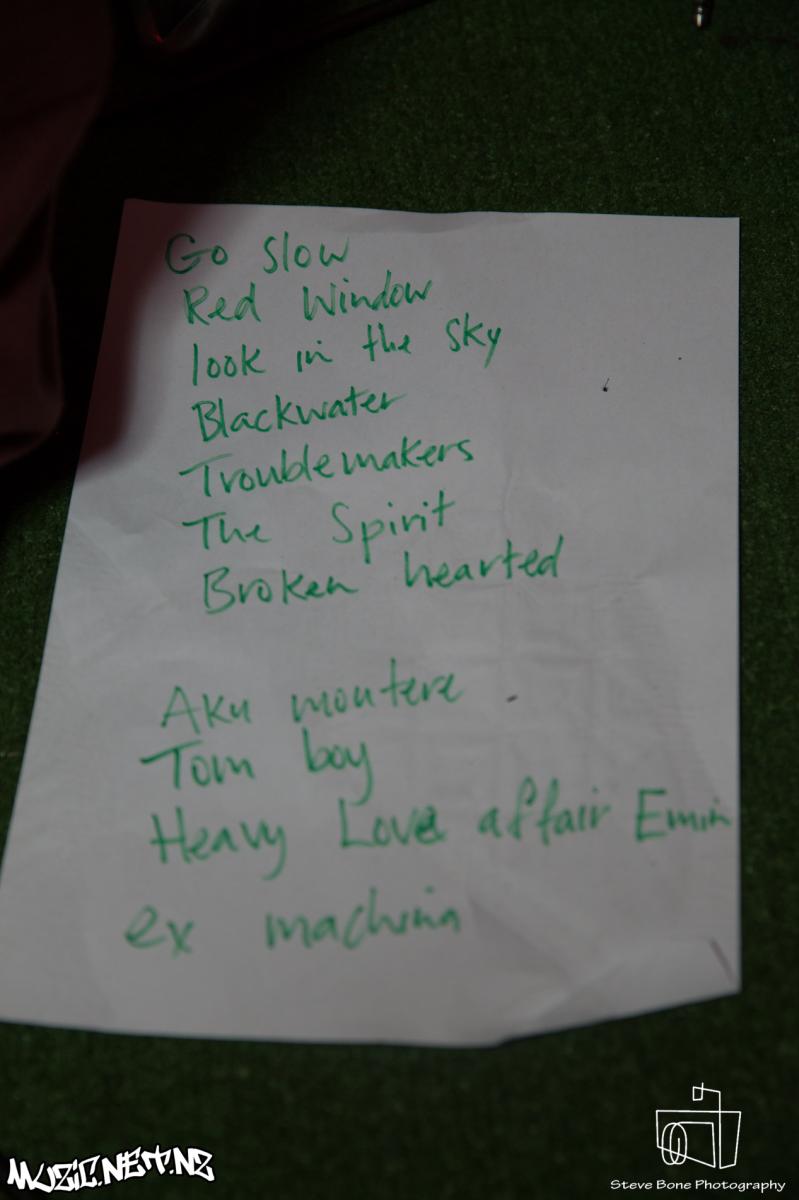 Go slow
Red Window
look in the sky
Blackwater
Troublemakers
The Spirit
Broken hearted
Aku moutere
Tom boy
Heavy Love affair Emin
ex machina
MUZIC.NET.NZ
Steve Bone Photography